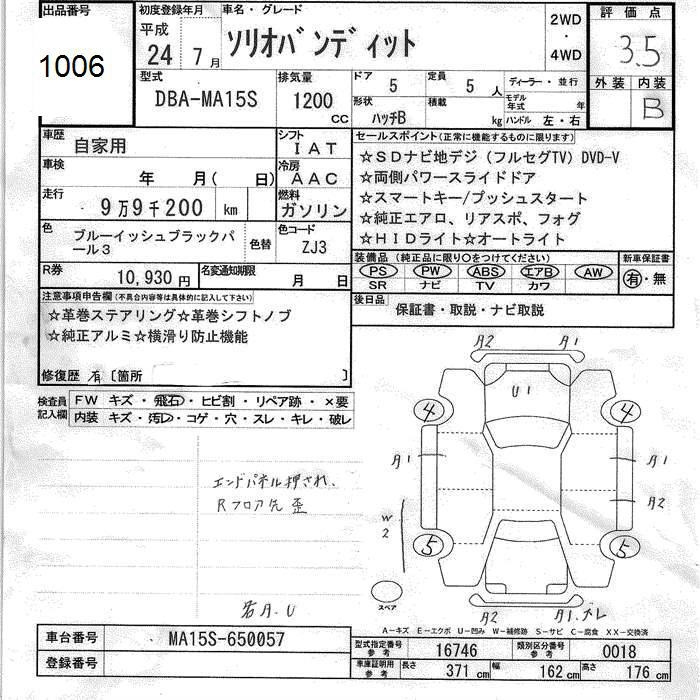 出品番号 初度登録年月 車名・グレード 2WD 評価点
平成 ソリオバンディット ・ 3.5
1006 24 7月 4WD
型式 排気量 ドア 定員 ディーラー・並行 外装 内装
DBA-MA15S 1200 CC 5 5人 モデル年式 年 B
形状 積載
ハッチB kg ハンドル 左・右
車歴 自家用 シフト IAT セールスポイント(正常に機能するものに限ります)
車検 年 月( 日) 冷房 AAC ☆SDナビ地デジ(フルセグTV)DVD-V
☆両側パワースライドドア
走行 9万9千200 km 燃料 ガソリン ☆スマートキー/プッシュスタート
☆純正エアロ、リアスポ、フォグ
色 ブルーイッシュブラックパール3 色替 色コード ZJ3 ☆HIDライト☆オートライト
装備品(純正品に限り○をつけてください) 新車保証書
R券 10,930円 名変通知期限 月 日 PS PW ABS エアB AW 有・無
SR ナビ TV カワ
注意事項申告欄(不具合内容等は具体的に記入して下さい) 後日品 保証書・取説・ナビ取説
☆革巻ステアリング☆革巻シフトノブ
☆純正アルミ☆横滑り防止機能
修復歴 有〔箇所 〕
検査員記入欄 FW キズ・飛石・ヒビ割・リペア跡・×要
内装 キズ・汚レ・コゲ・穴・スレ・キレ・破レ
A2 A1
U1
4 4
A1 A1
エンドパネル押され、
Rフロア先歪
A2
W2
5 5
スペア
若A.U
A2 A1.ズレ
A-キズ E-エクボ U-凹み W-補修跡 S-サビ C-腐食 XX-交換済
車台番号 MA15S-650057 型式指定番号 参考 16746 類別区分番号 参考 0018
登録番号 車庫証明用 参考 長さ 371cm 幅 162cm 高さ 176cm